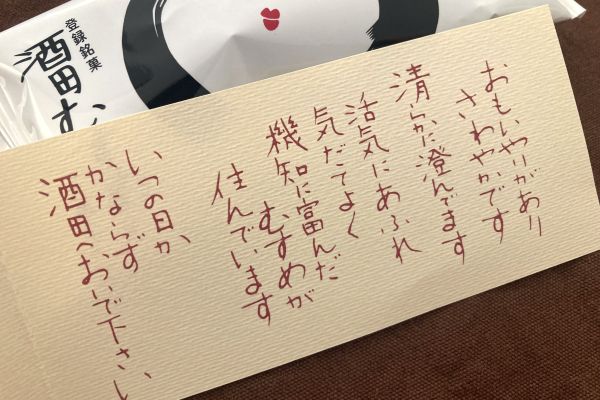 登録銘菓
酒田む
おもいやりがあり
さわやかです
清らかに澄んでます
活気にあふれ
気だてよく
機知に富んだ
むすめが
住んでいます
いつの日か、
かならず
酒田へおいで下さい